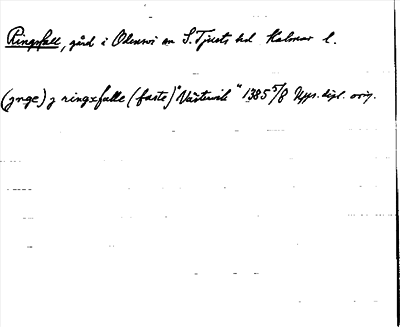 Ringsfall, gård i Odensvi sn S. Tjusts hd Kalmar l.
(ynge) j ringxfalle (faste) "Västervik" 1385 5/8 Upps. dipl. orig.